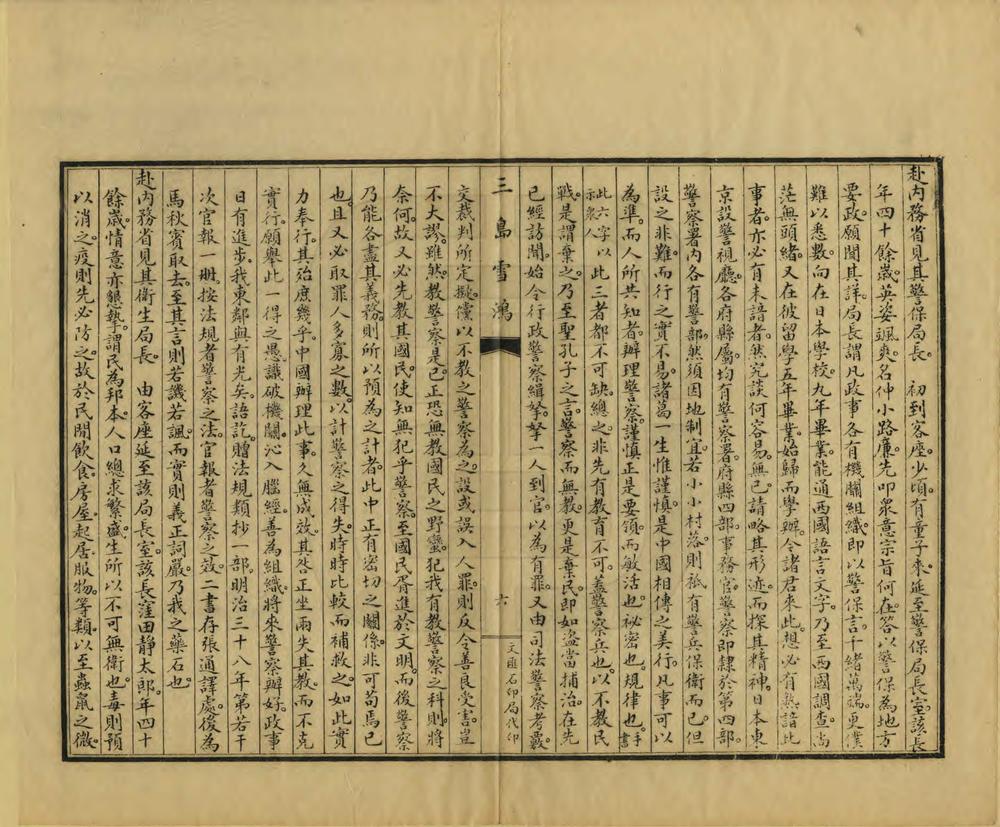 赴內務省見其警保局長。　初到客座。少頃。有童子來。延至警保局長室。該長
年四十餘歲。英姿颯爽。名仲小路廉。先叩眾意宗旨何在。答以警保為地方
要政。願聞其詳。局長謂凡政事各有機關組織。即以警保言。千緒萬端。更僕
難以悉數。向在日本學校。九年畢業。能通西國語言文字。乃至西國調查。尚
茫無頭緒。又在彼留學五年畢業。始歸而學辦。今諸君來此。想必有熟諳此
事者。亦必有未諳者。然究談何容易。無已。請略其形迹。而探其精神。日本東
京設警視廳。各府縣屬。均有警察署。府縣四部。事務官。警察即隸於第四部。
警察署內各有警部。然須因地制宜。若小小村落。則祇有警兵保衛而已。但
設之非難。而行之實不易。諸葛一生惟謹慎。是中國相傳之美行。凡事可以
為準。而人所共知者。辦理警察。謹慎正是要領。而敏活也。祕密也。規律也。手書
此六字以示眾人此三者都不可缺。總之。非先有教育不可。蓋警察兵也。以不教民
戰。是謂棄之。乃至聖孔子之言。警察而無教。更是棄民。即如盜當捕治。在先
已經訪聞。始令行政警察緝拏。拏一人到官。以為有罪。又由司法警察考覈。
三島雪鴻
六
文匯石印局代印
交裁判所定擬。儻以不教之警察為之。設或誤入人罪。則反令善良受害。豈
不大謬。雖然。教警察是已。正恐無教國民之野蠻。犯我有教警察之科。則將
奈何。故又必先教其國民。使知無犯乎警察。至國民胥進於文明。而後警察
乃能各盡其義務。則所以預為之計者。此中正有密切之關係。非可苟焉已
也。且又必取罪人多寡之數。以計警察之得失。時時比較而補救之。如此實
力奉行。其殆庶幾乎。中國辦理此事。久無成效。其咎正坐兩失其教。而不克
實行。願舉此一得之愚。識破機關。沁入腦經。善為組織。將來警察辦好。政事
日有進步。我東鄰與有光矣。語訖。贈法規類抄一部。明治三十八年第若干
次官報一冊。按法規者。警察之法。官報者。警察之效。二書存張通譯處。後為
馬秋賓取去。至其言則若譏若諷。而實則義正詞嚴。乃我之藥石也。
赴內務省見其衛生局長。　由客座延至該局長室。該長窪田靜太郎。年四十
餘歲。情意亦懇摯。謂民為邦本。人口總求繁盛。生所以不可無衛也。毒則預
以消之。疫則先必防之。故於民間飲食房屋起居服物等類。以至蟲鼠之微。